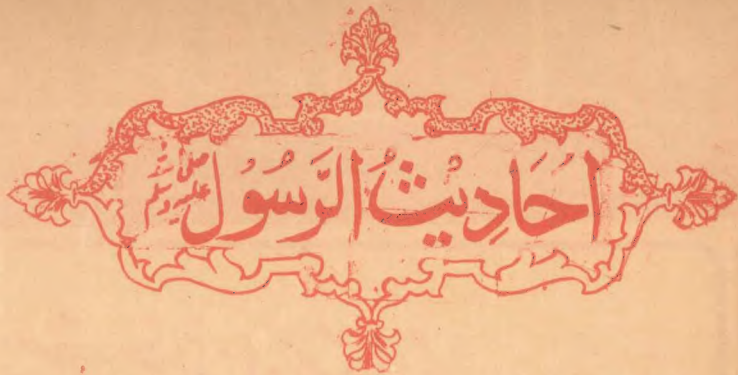 اَحَادِيثُ الرَّسُوْل صلی اللہ علیہ وسلم